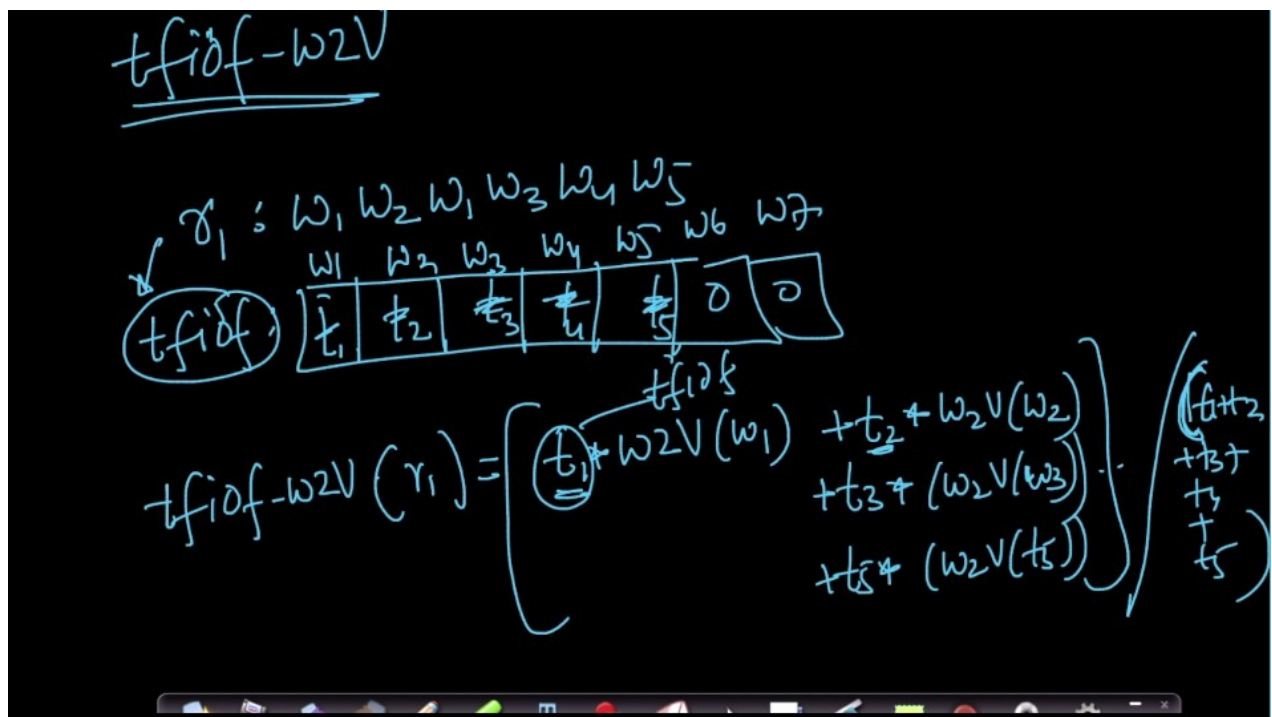 tfidf-w2V
r1 : w1 w2 w1 w3 w4 w5
w1 w2 w3 w4 w5 w6 w7
tfidf : t1 t2 t3 t4 t5 0 0
tfidf
tfidf-w2V (r1) = [ t1 * w2V(w1) + t2 * w2V(w2)
+ t3 * (w2V(w3))
+ t5 * (w2V(t5)) ] / (t1+t2
+t3+
t4
+
t5)